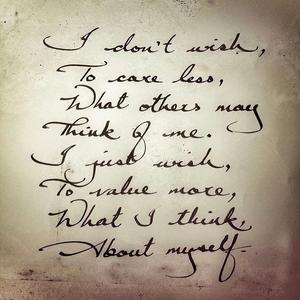 I don't wish,
To care less,
What others may
Think of me.
I just wish,
To value more,
What I think,
About myself.